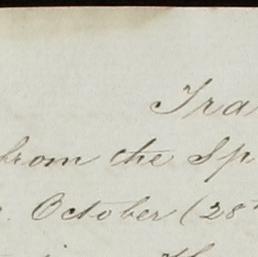 Tra
from the Sp
October (28th